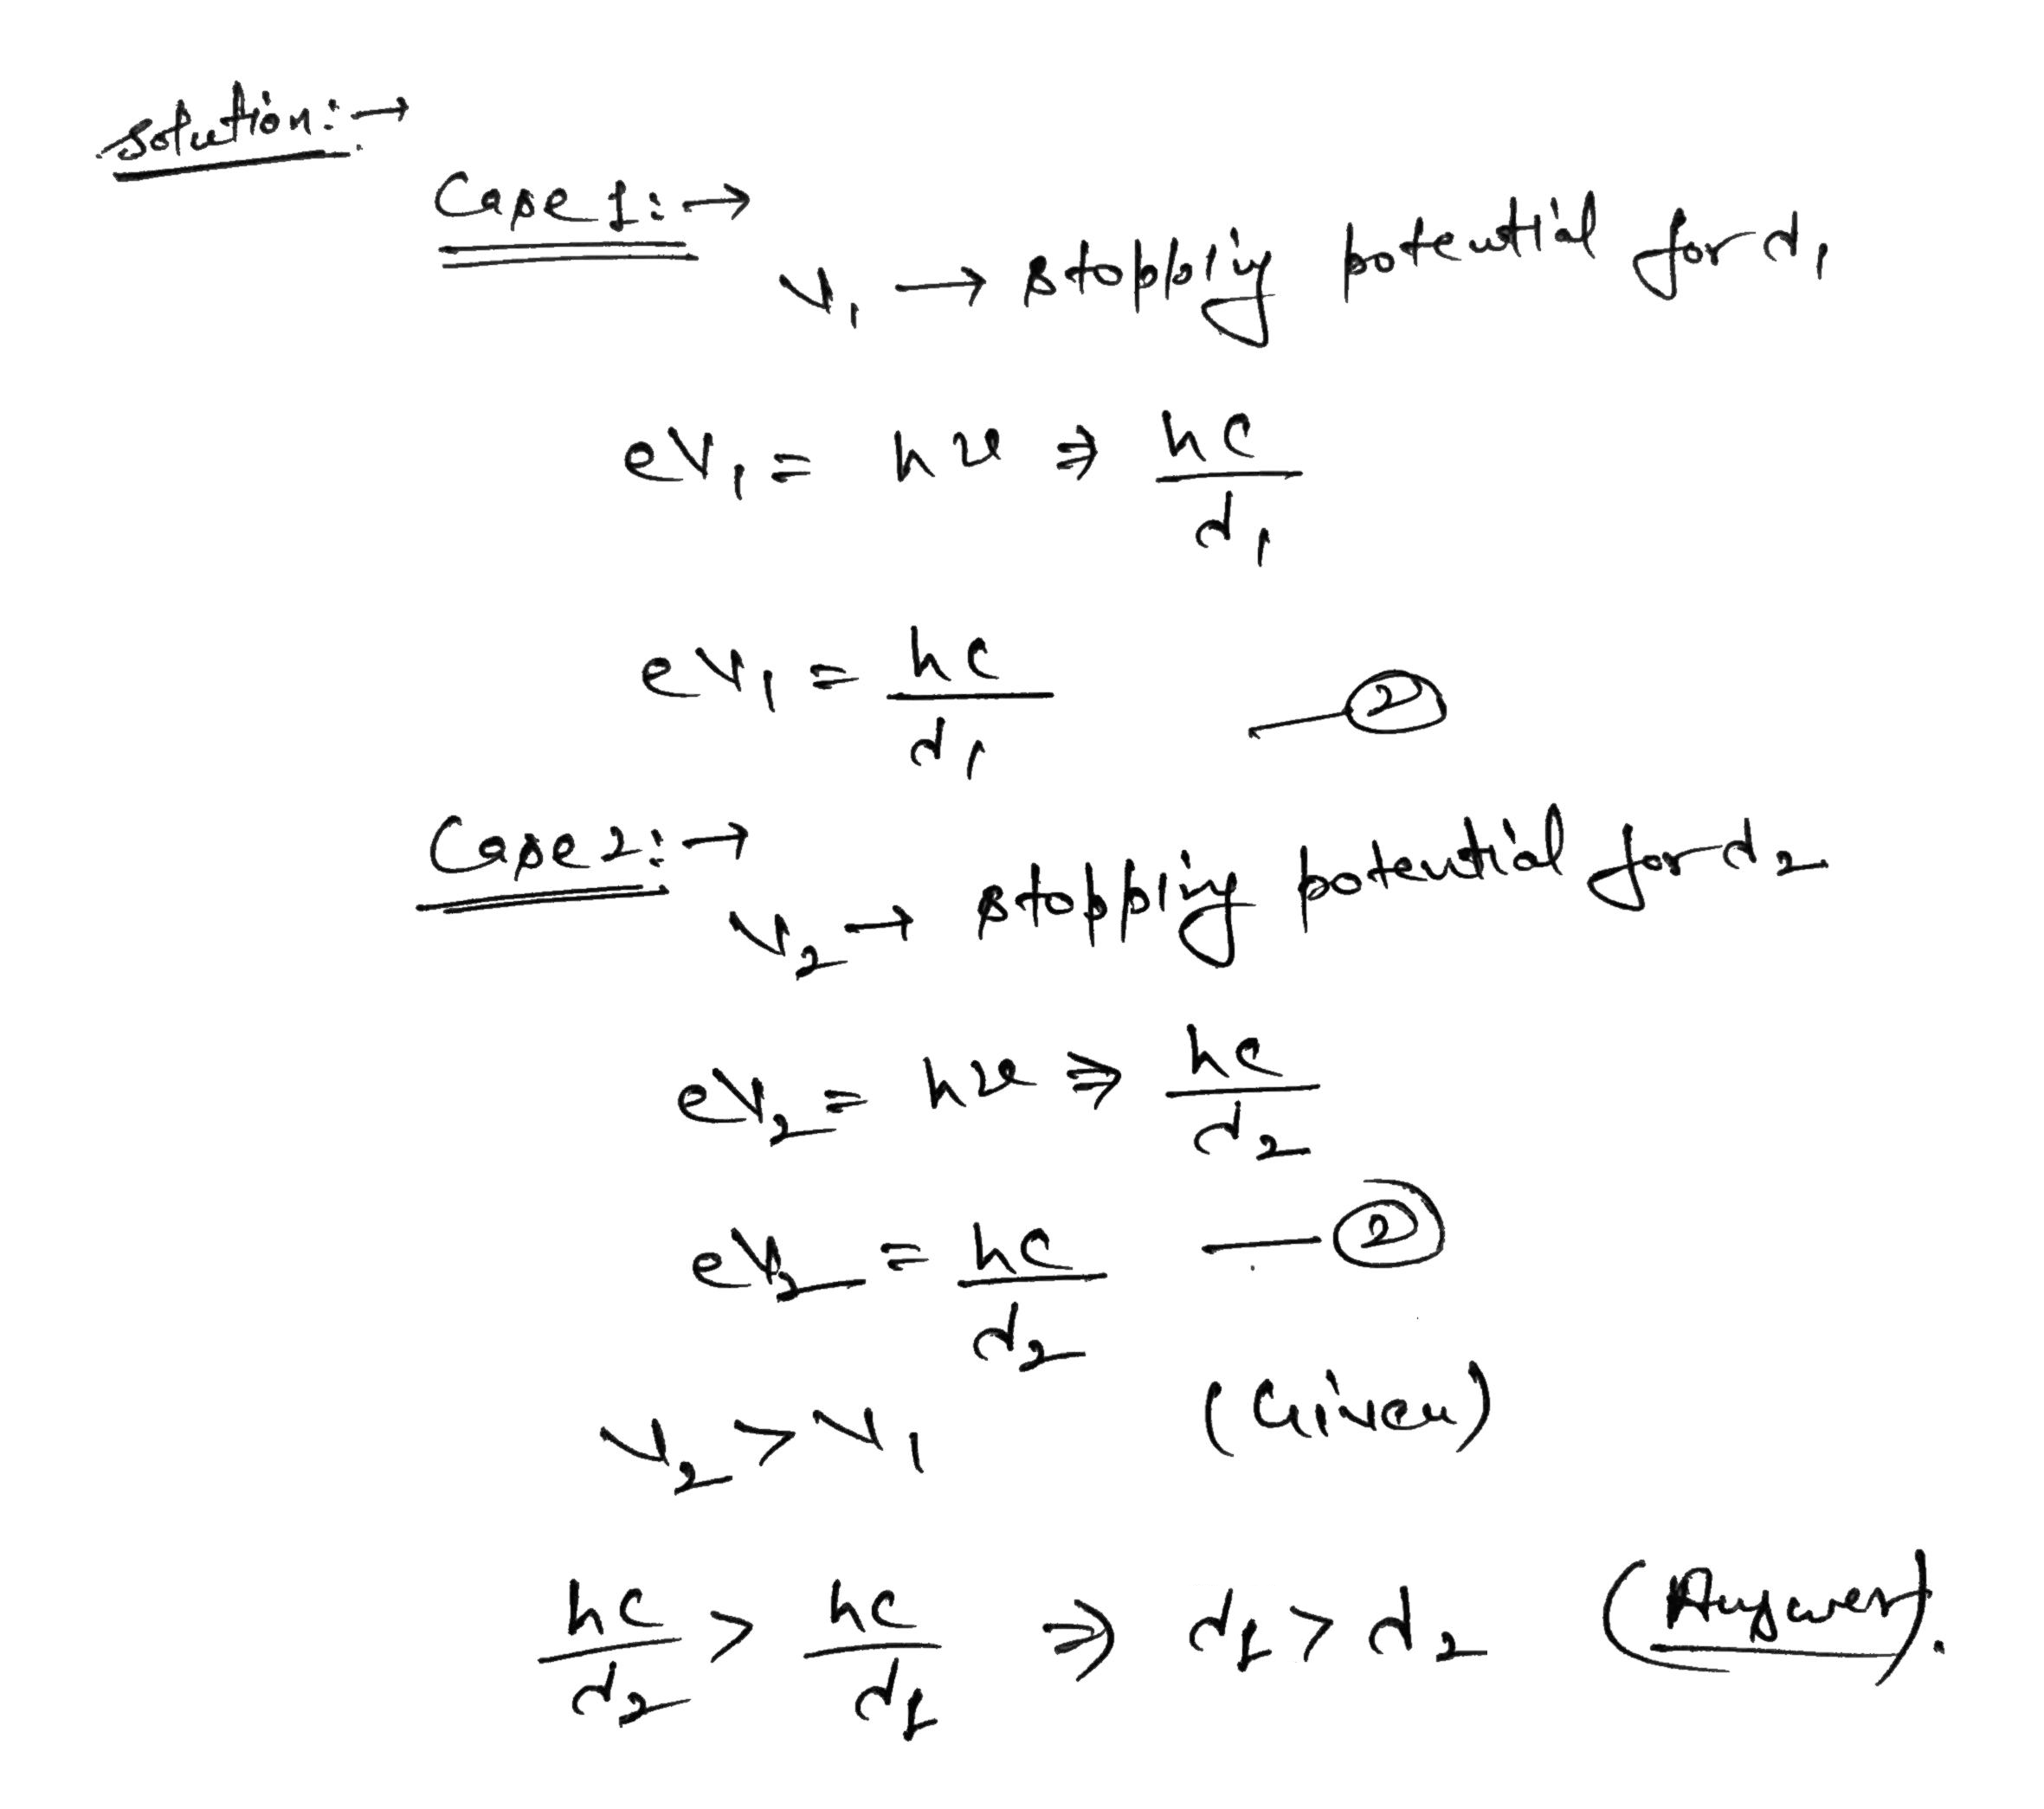 Solution:→
Case 1:→
V₁ → stopping potential for λ₁
eV₁ = hν ⇒ hc/λ₁
eV₁ = hc/λ₁ —②
Case 2:→
V₂ → stopping potential for λ₂
eV₂ = hν ⇒ hc/λ₂
eV₂ = hc/λ₂ —②
V₂ > V₁ (Given)
hc/λ₂ > hc/λ₁ ⇒ λ₁ > λ₂ (Answer).